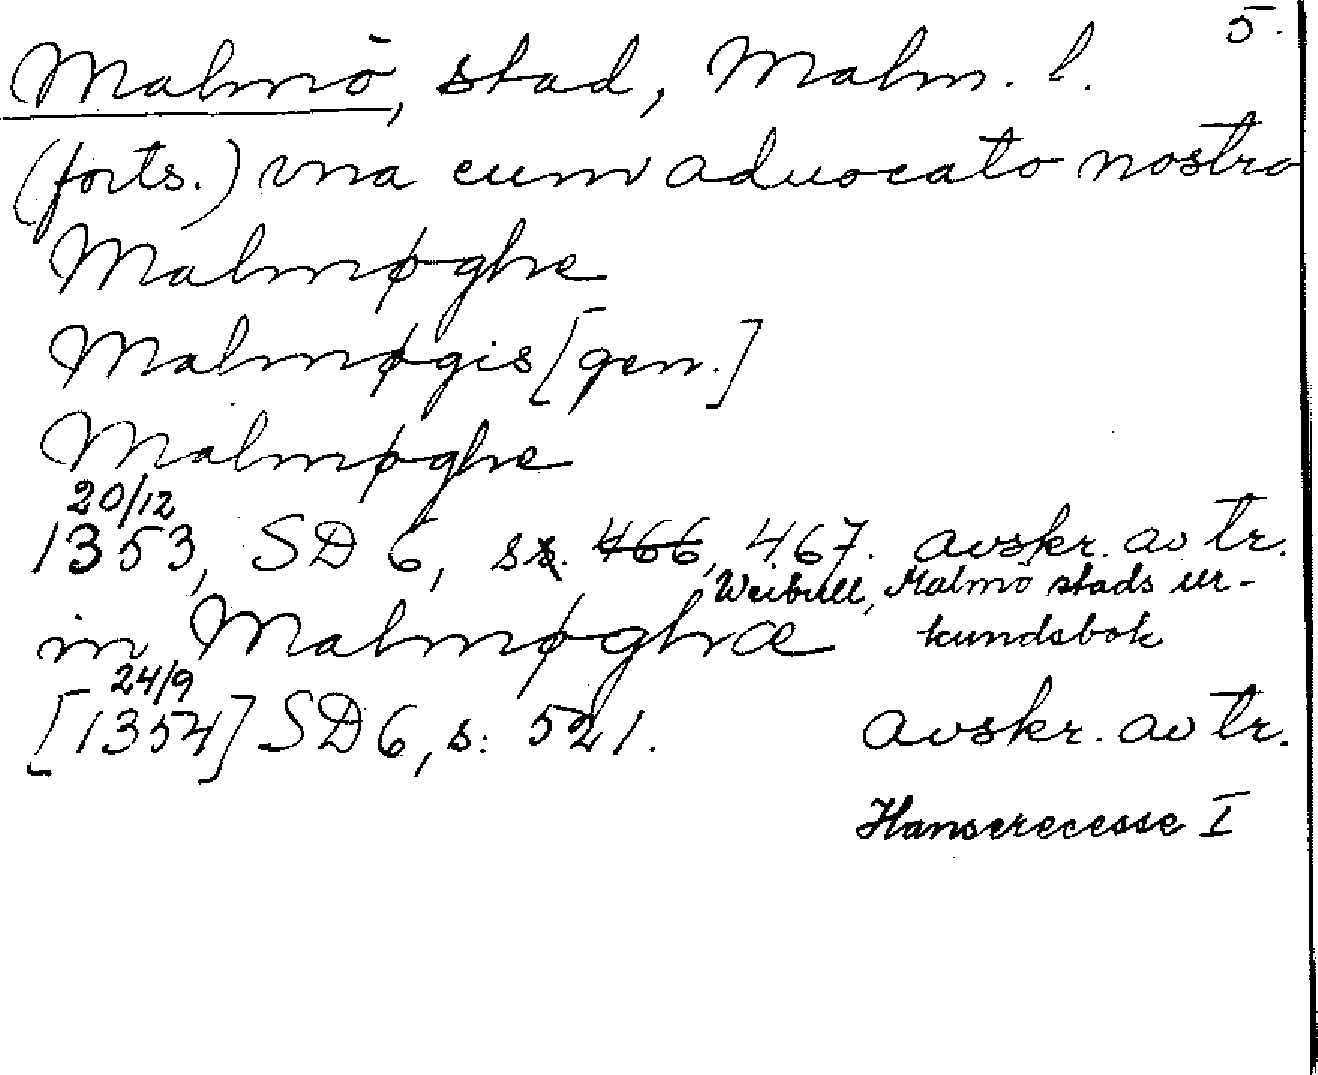 5.
Malmö, stad, Malm. l.
(forts.) vna cum aduocato nostro
Malmøghe
Malmøgis [gen.]
Malmøghe
20/12
1353, SD 6, s. 466, 467. avskr. av tr.
Weibull, Malmö stads ur-
in Malmøghæ kundsbok
24/9
[1354] SD 6, s: 521. avskr. av tr.
Hanserecesse I